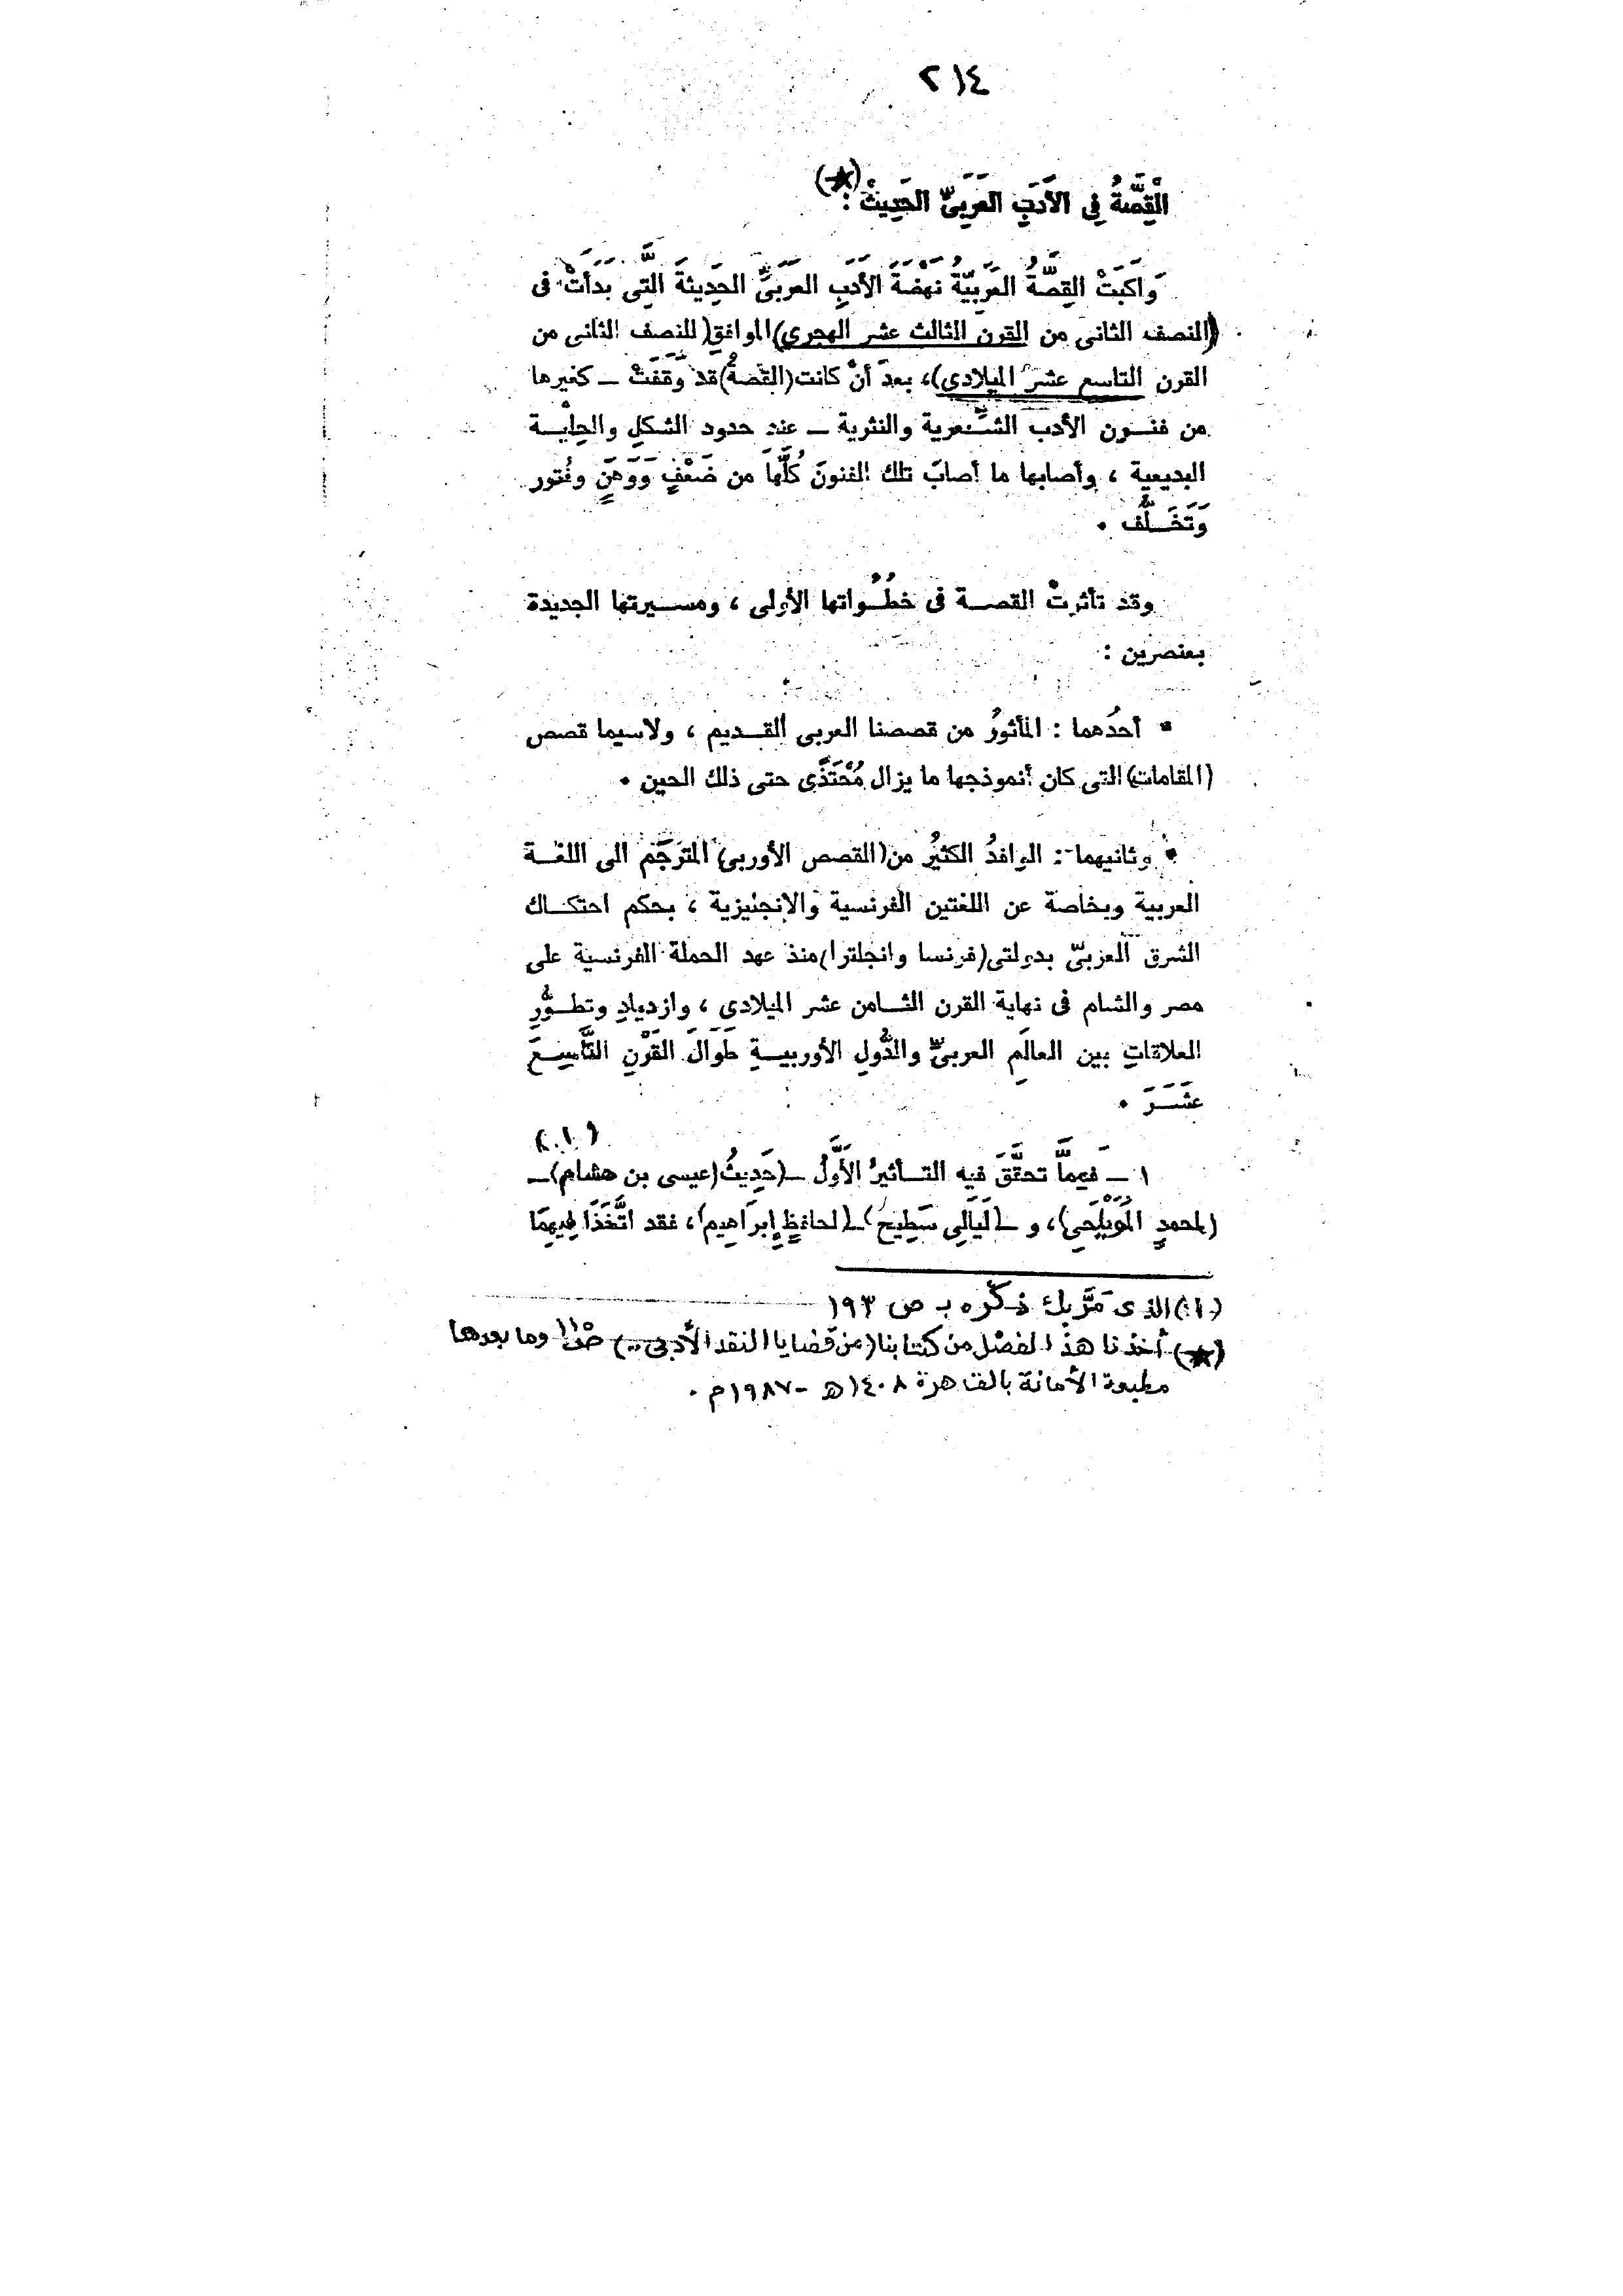 ٢١٤
الْقِصَّةُ فِى الأَدَبِ العَرَبِىِّ الحَدِيثْ : (★)
وَاكَبَتْ القِصَّةُ العَرَبِيَّةُ نَهْضَةَ الأَدَبِ العَرَبَىِّ الحَدِيثةَ الَّتِى بَدَأَتْ فى
(النصف الثانى من القرن الثالث عشر الهجرى) الموافقِ (للنصف الثانى من
القرن التاسع عشرَ الميلادى)، بعدَ أنْ كانت (القصةُ) قد وَقَفَتْ ــ كغيرها
من فنــون الأدب الشــعرية والنثرية ــ عند حدود الشكلِ والحِلْيــة
البديعية ، وأصابها ما أصابَ تلك الفنونَ كُلَّهَا من ضَعْفٍ وَوَهَنٍ وفُتور
وَتَخَــلُّف ٠
وقد تأثرتْ القصــة فى خطُــواتها الأولى ، ومســيرتها الجديدة
بعنصرين :
• أحدُهما : المأثورُ من قصصنا العربى القــديم ، ولاسيما قصص
(المقامات) التى كان أنموذجها ما يزال مُحْتَذًى حتى ذلك الحين ٠
• وثانيهما : الوافدُ الكثيُر من (القصص الأوربى) المترَجَم الى اللغــة
العربية وبخاصة عن اللغتين الفرنسية والإنجليزية ، بحكم احتكــاك
الشرق العربىّ بدولتى (فرنسا وانجلترا) منذ عهد الحملة الفرنسية على
مصر والشام فى نهاية القرن الثــامن عشر الميلادى ، وازديادِ وتطــوُّرِ
العلاقاتِ بين العالَمِ العربىِّ والدُّولِ الأوربيــةِ طَوَالَ القَرْنِ التَّاسِــعَ
عَشَــرَ ٠
١ ــ فمِمَّا تحقَّقَ فيه التــأثيرُ الأَوَّلُ ــ (حَدِيثُ (عيسى بن هشام) ــ (١)
(لمحمدٍ المُوَيْلِحِى)، و ــ (لَيَالِى سَطِيحْ) ــ (لحافظِ إِبرَاهِيم)، فقد اتَّخَذَا فِيهِمَا
(١) الذى مَرَّ بك ذكره بـ ص ١٩٣
(★) أخذنا هذا الفصْل من كتابنا (من قَضايا النقد الأدبى ..) صـ ١١ وما بعدها
مطبعة الأمانة بالقاهرة ١٤٠٨هـ - ١٩٨٧م .